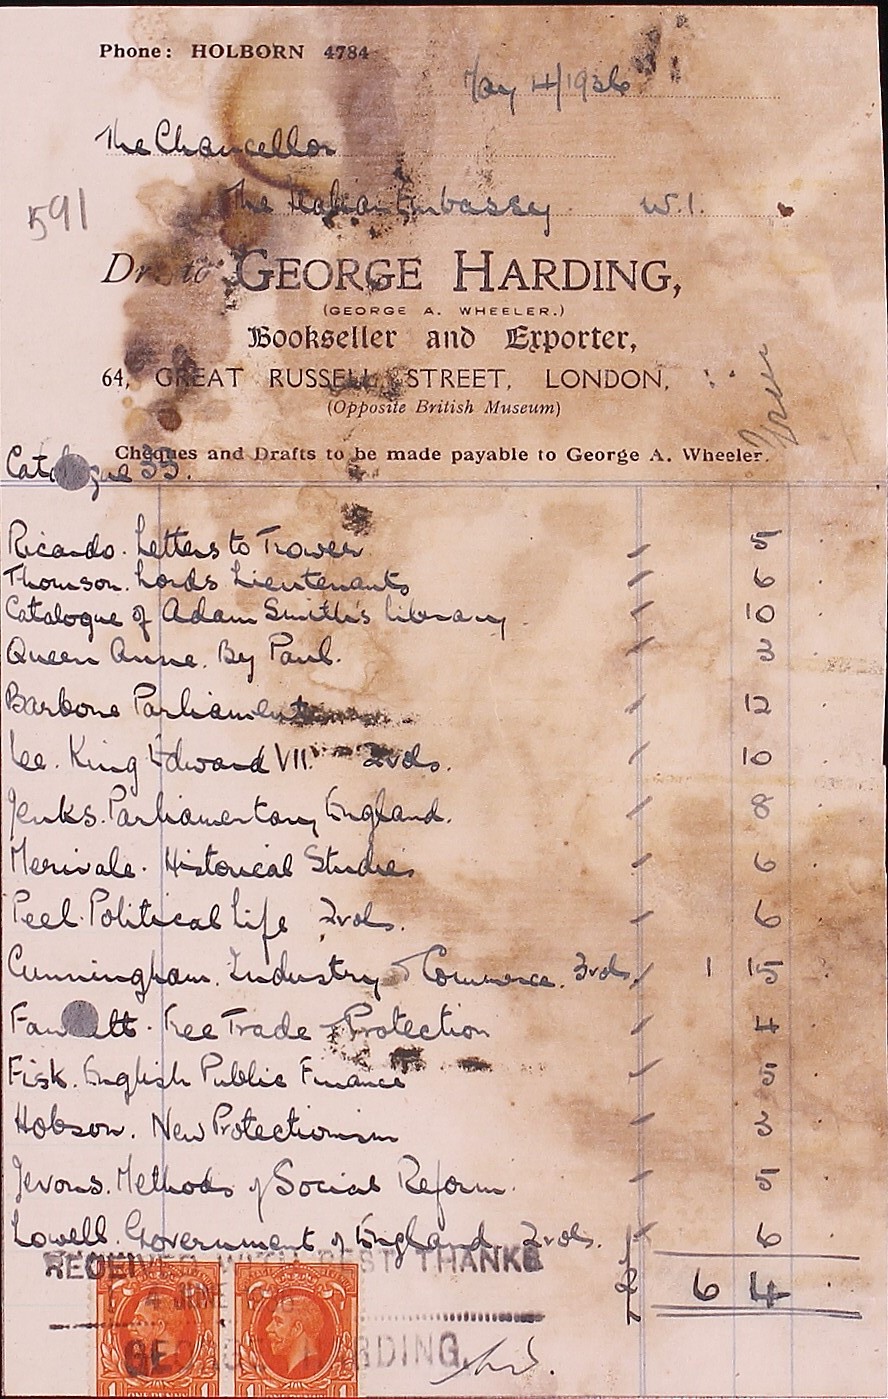 Phone: HOLBORN 4784
May 4/1936
The Chancellor
The Italian Embassy W.1.
591
Dr. to GEORGE HARDING,
(GEORGE A. WHEELER.)
Bookseller and Exporter,
64, GREAT RUSSELL STREET, LONDON,
(Opposite British Museum)
Cheques and Drafts to be made payable to George A. Wheeler.
Catalogue 35.
Ricardo. Letters to Trower 5
Thomson. Lords Lieutenants 6
Catalogue of Adam Smith's library. 10
Queen Anne. By Paul. 3
Barbone Parliament 12
Lee. King Edward VII. 2 vols. 10
Jenks. Parliamentary England. 8
Merivale. Historical Studies 6
Peel. Political Life 2 vols. 6
Cunningham. Industry & Commerce. 3 vols. 1 15
Fawcett. Free Trade & Protection 4
Fisk. English Public Finance 5
Hobson. New Protectionism 3
Jevons. Methods of Social Reform. 5
Lowell. Government of England 2 vols. 6
£ 6 4
RECEIVED WITH BEST THANKS
4 JUNE 1936
GEORGE HARDING.